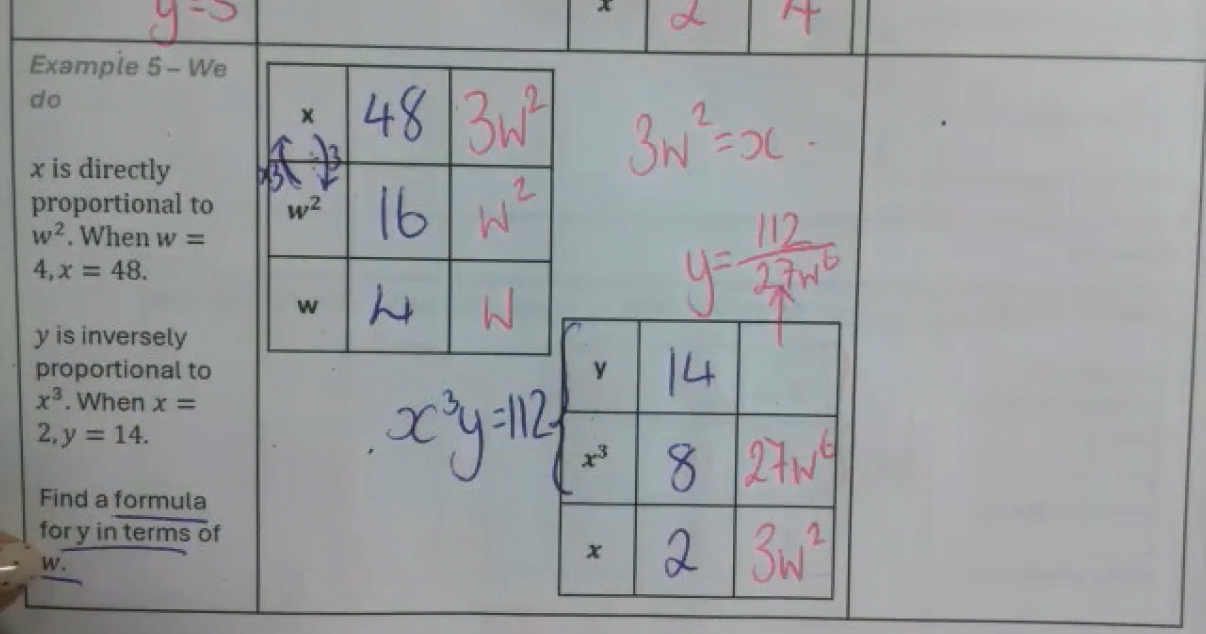 y=5
x 2 4
Example 5 – We
do
x is directly
proportional to
w². When w =
4, x = 48.
y is inversely
proportional to
x³. When x =
2, y = 14.
Find a formula
for y in terms of
w.
x 48 3w²
×3 ÷3
w² 16 w²
w 4 w
3w²=x
y=112/27w⁶
x³y=112
y 14
x³ 8 27w⁶
x 2 3w²